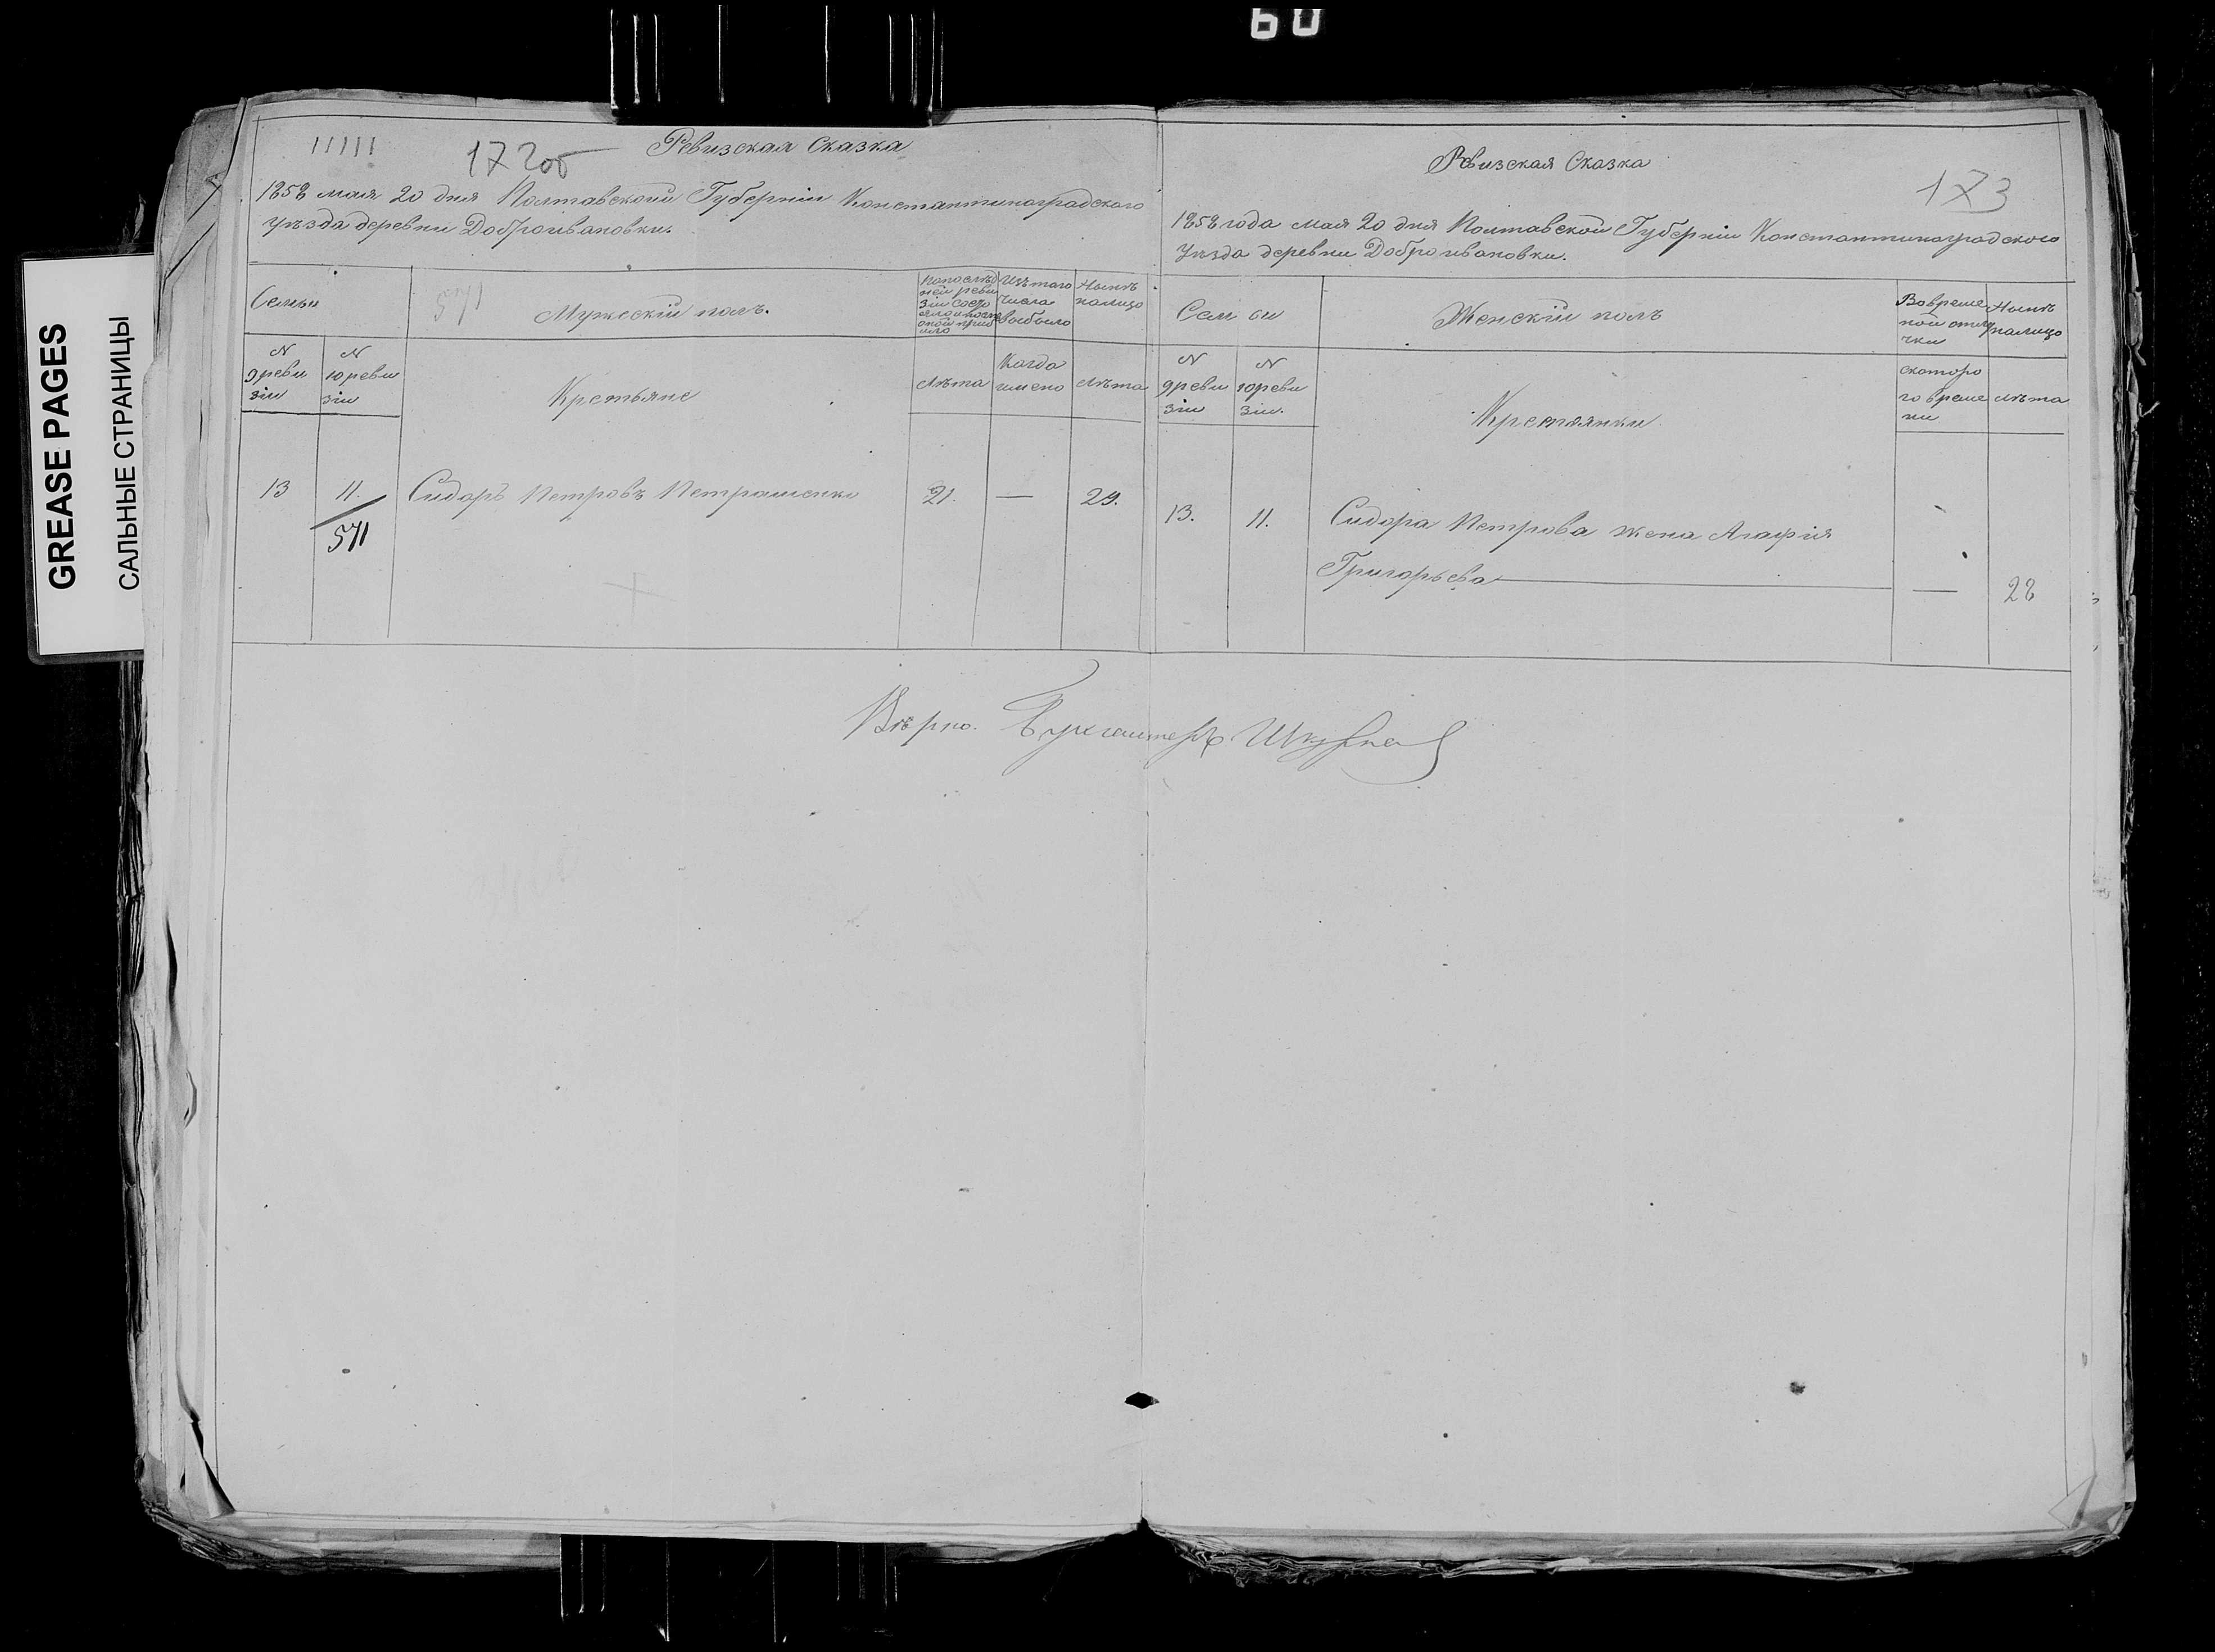 60
GREASE PAGES
САЛЬНЫЕ СТРАНИЦЫ
172об
Ревизская Сказка
1858 мая 20 дня Полтавской Губерніи Константиноградского
уѣзда деревни Доброивановки.
Семьи
571
Мужескій полъ.
По послѣд
ней реви
зіи состо
Изъ того
числа
выбыло
Нынѣ
налицо
N
9 реви
зіи
N
10 реви
зіи
Крестьяне
Лѣта
Когда
имено
Лѣта
13
11.
571
Сидоръ Петровъ Петрашенко
21.
—
29.
Ревизская Сказка
173
1858 года мая 20 дня Полтавской Губерніи Константиноградского
уѣзда деревни Доброивановки.
Семьи
Женскій полъ
Во време
ной отлу
чки
Нынѣ
налицо
N
9 реви
зіи
N
10 реви
зіи.
Крестьянки
скоторо
го време
ни
лѣта
13.
11.
Сидора Петрова жена Агафія
Григорьева
—
28
Вѣрно. Бухгалтеръ